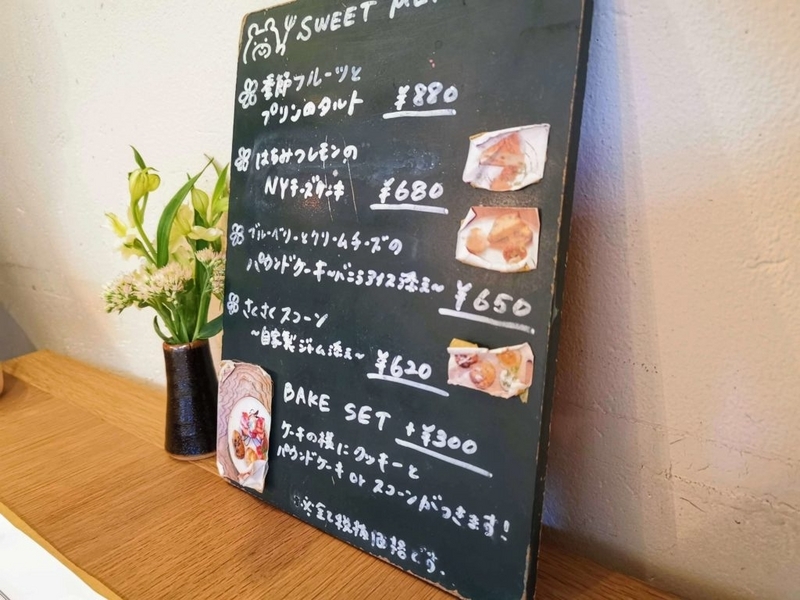 SWEET
季節フルーツと
プリンのタルト ¥880
はちみつレモンの
NYチーズケーキ ¥680
ブルーベリーとクリームチーズの
パウンドケーキ～バニラアイス添え～ ¥650
さくさくスコーン
～自家製ジャム添え～ ¥620
BAKE SET +¥300
ケーキの横にクッキーと
パウンドケーキ or スコーンがつきます!
※全て税抜価格です。